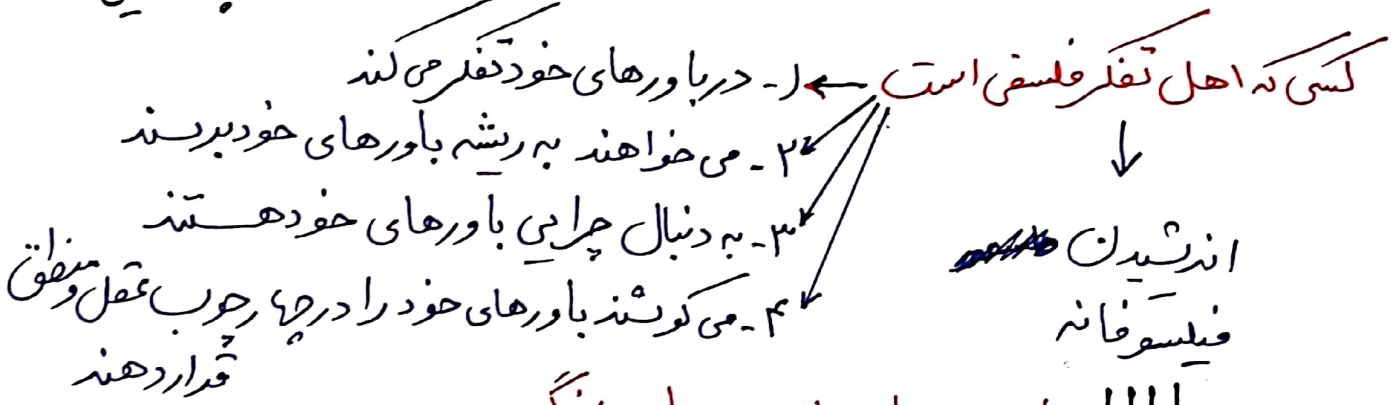 کسی که اهل تفکر فلسفی است ← ۱- در باورهای خود تفکر می کند
۲- می خواهند به ریشه باورهای خود برسند
۳- به دنبال چرایی باورهای خود هستند
۴- می کوشند باورهای خود را در چهارچوب عقل و منطق
قرار دهند
↓
اندیشیدن
فیلسوفانه